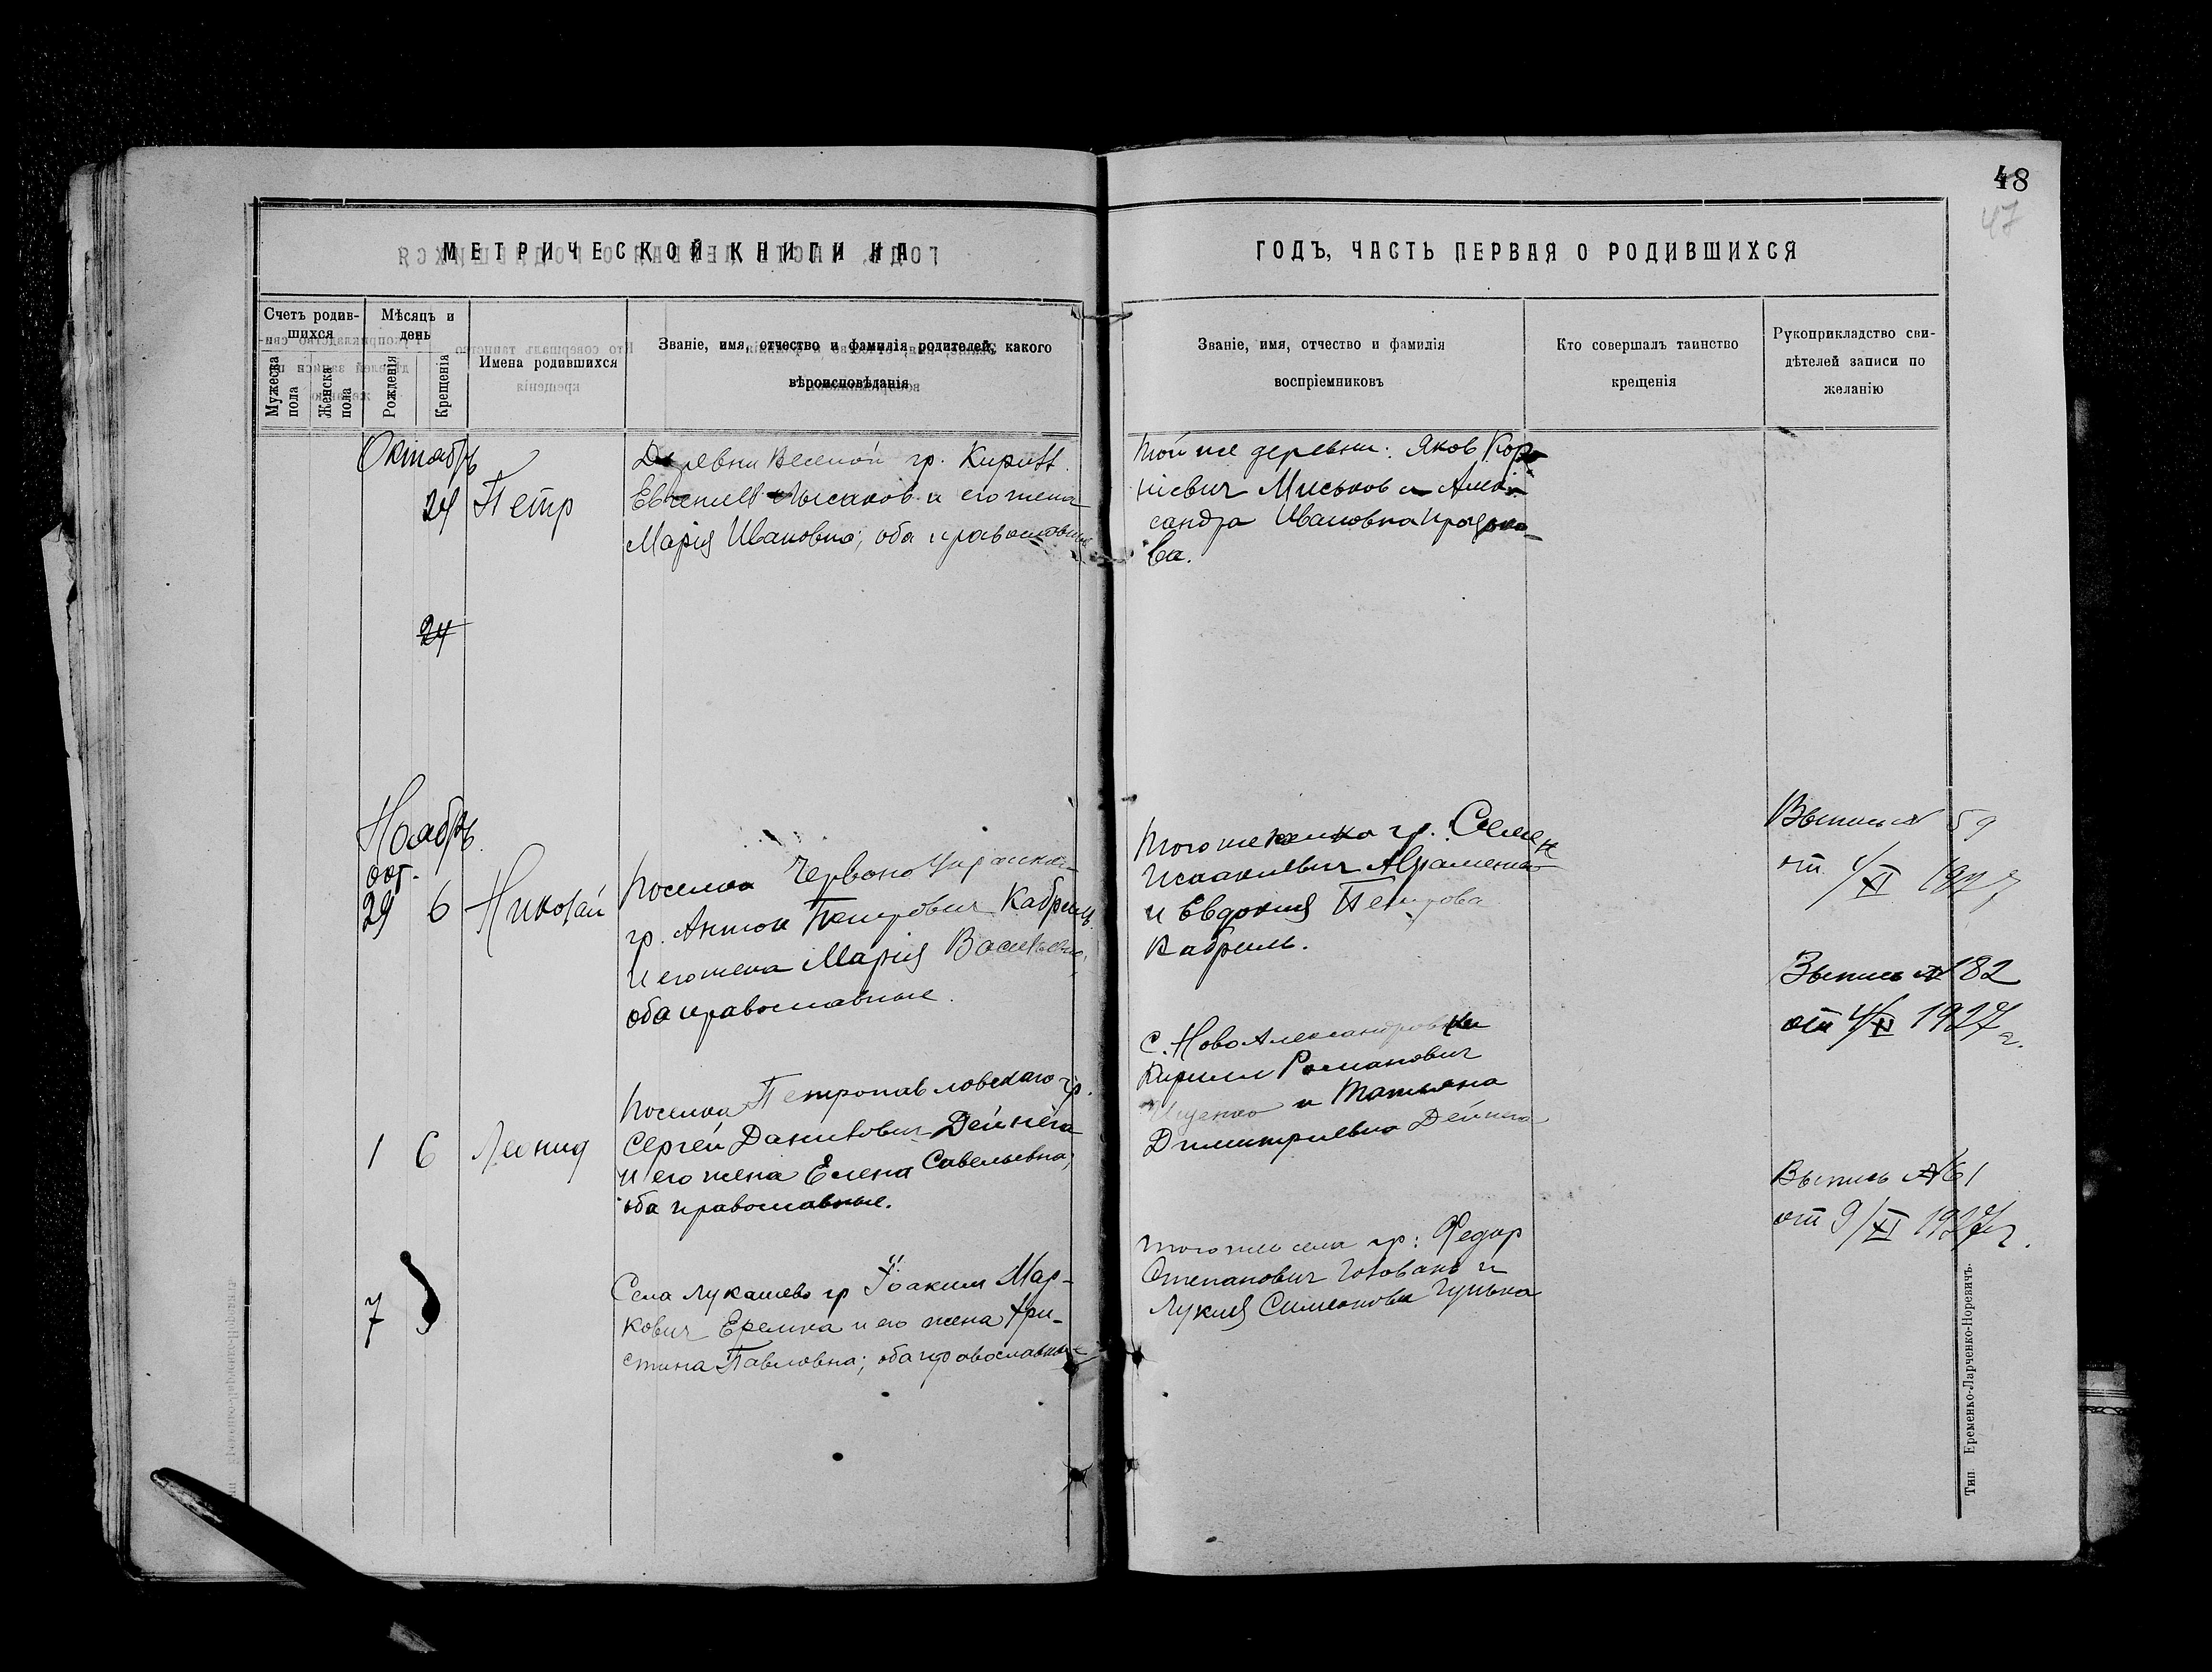 48
47
МЕТРИЧЕСКОЙ КНИГИ НА
ГОДЪ, ЧАСТЬ ПЕРВАЯ О РОДИВШИХСЯ
Счетъ родив-
шихся
Мужеска
пола
Женска
пола
Мѣсяцъ и
день
Рожденія
Крещенія
Имена родившихся
Званіе, имя, отчество и фамилія родителей, какого
вѣроисповѣданія
Званіе, имя, отчество и фамилія
воспріемниковъ
Кто совершалъ таинство
крещенія
Рукоприкладство сви-
дѣтелей записи по
желанію
Октябрь
24 Петр
Деревни Веселой гр. Кирилл
и его жена
Марія Ивановна; оба православные
той же деревни: Яков Кор-
ніевич Миськов и Алек-
сандра Ивановна
ва.
24
Ноябрь
окт.
29 6 Николай
Поселка Червоно
гр. Антон Петрович Кабриль
и его жена Марія Васильевна,
оба православные.
Того же поселка гр. Семен
Исаакиевич Авраменко
и Евдокия Петрова
Кабриль.
Выпись № 59
от 4/XI 1927
1 6 Леонид
Поселка Петропавловскаго гр.
Сергей Данилович Дейнега
и его жена Елена Савельевна;
оба православные.
с. Ново Александровки
Кирилл Романович
Ищенко и Татьяна
Димитриевна Дейнега
Выпись № 182
от 4/XI 1927 г.
7
Села Лукашево гр Іоаким Мар-
кович Еремка и его жена Хри-
стина Павловна; оба православные
того же села гр: Федор
Степанович Головань и
Лукия Симеоновна Гунька
Выпись № 61
от 9/XI 1927 г.
Тип. Еременко-Ларченко-Норевичъ.